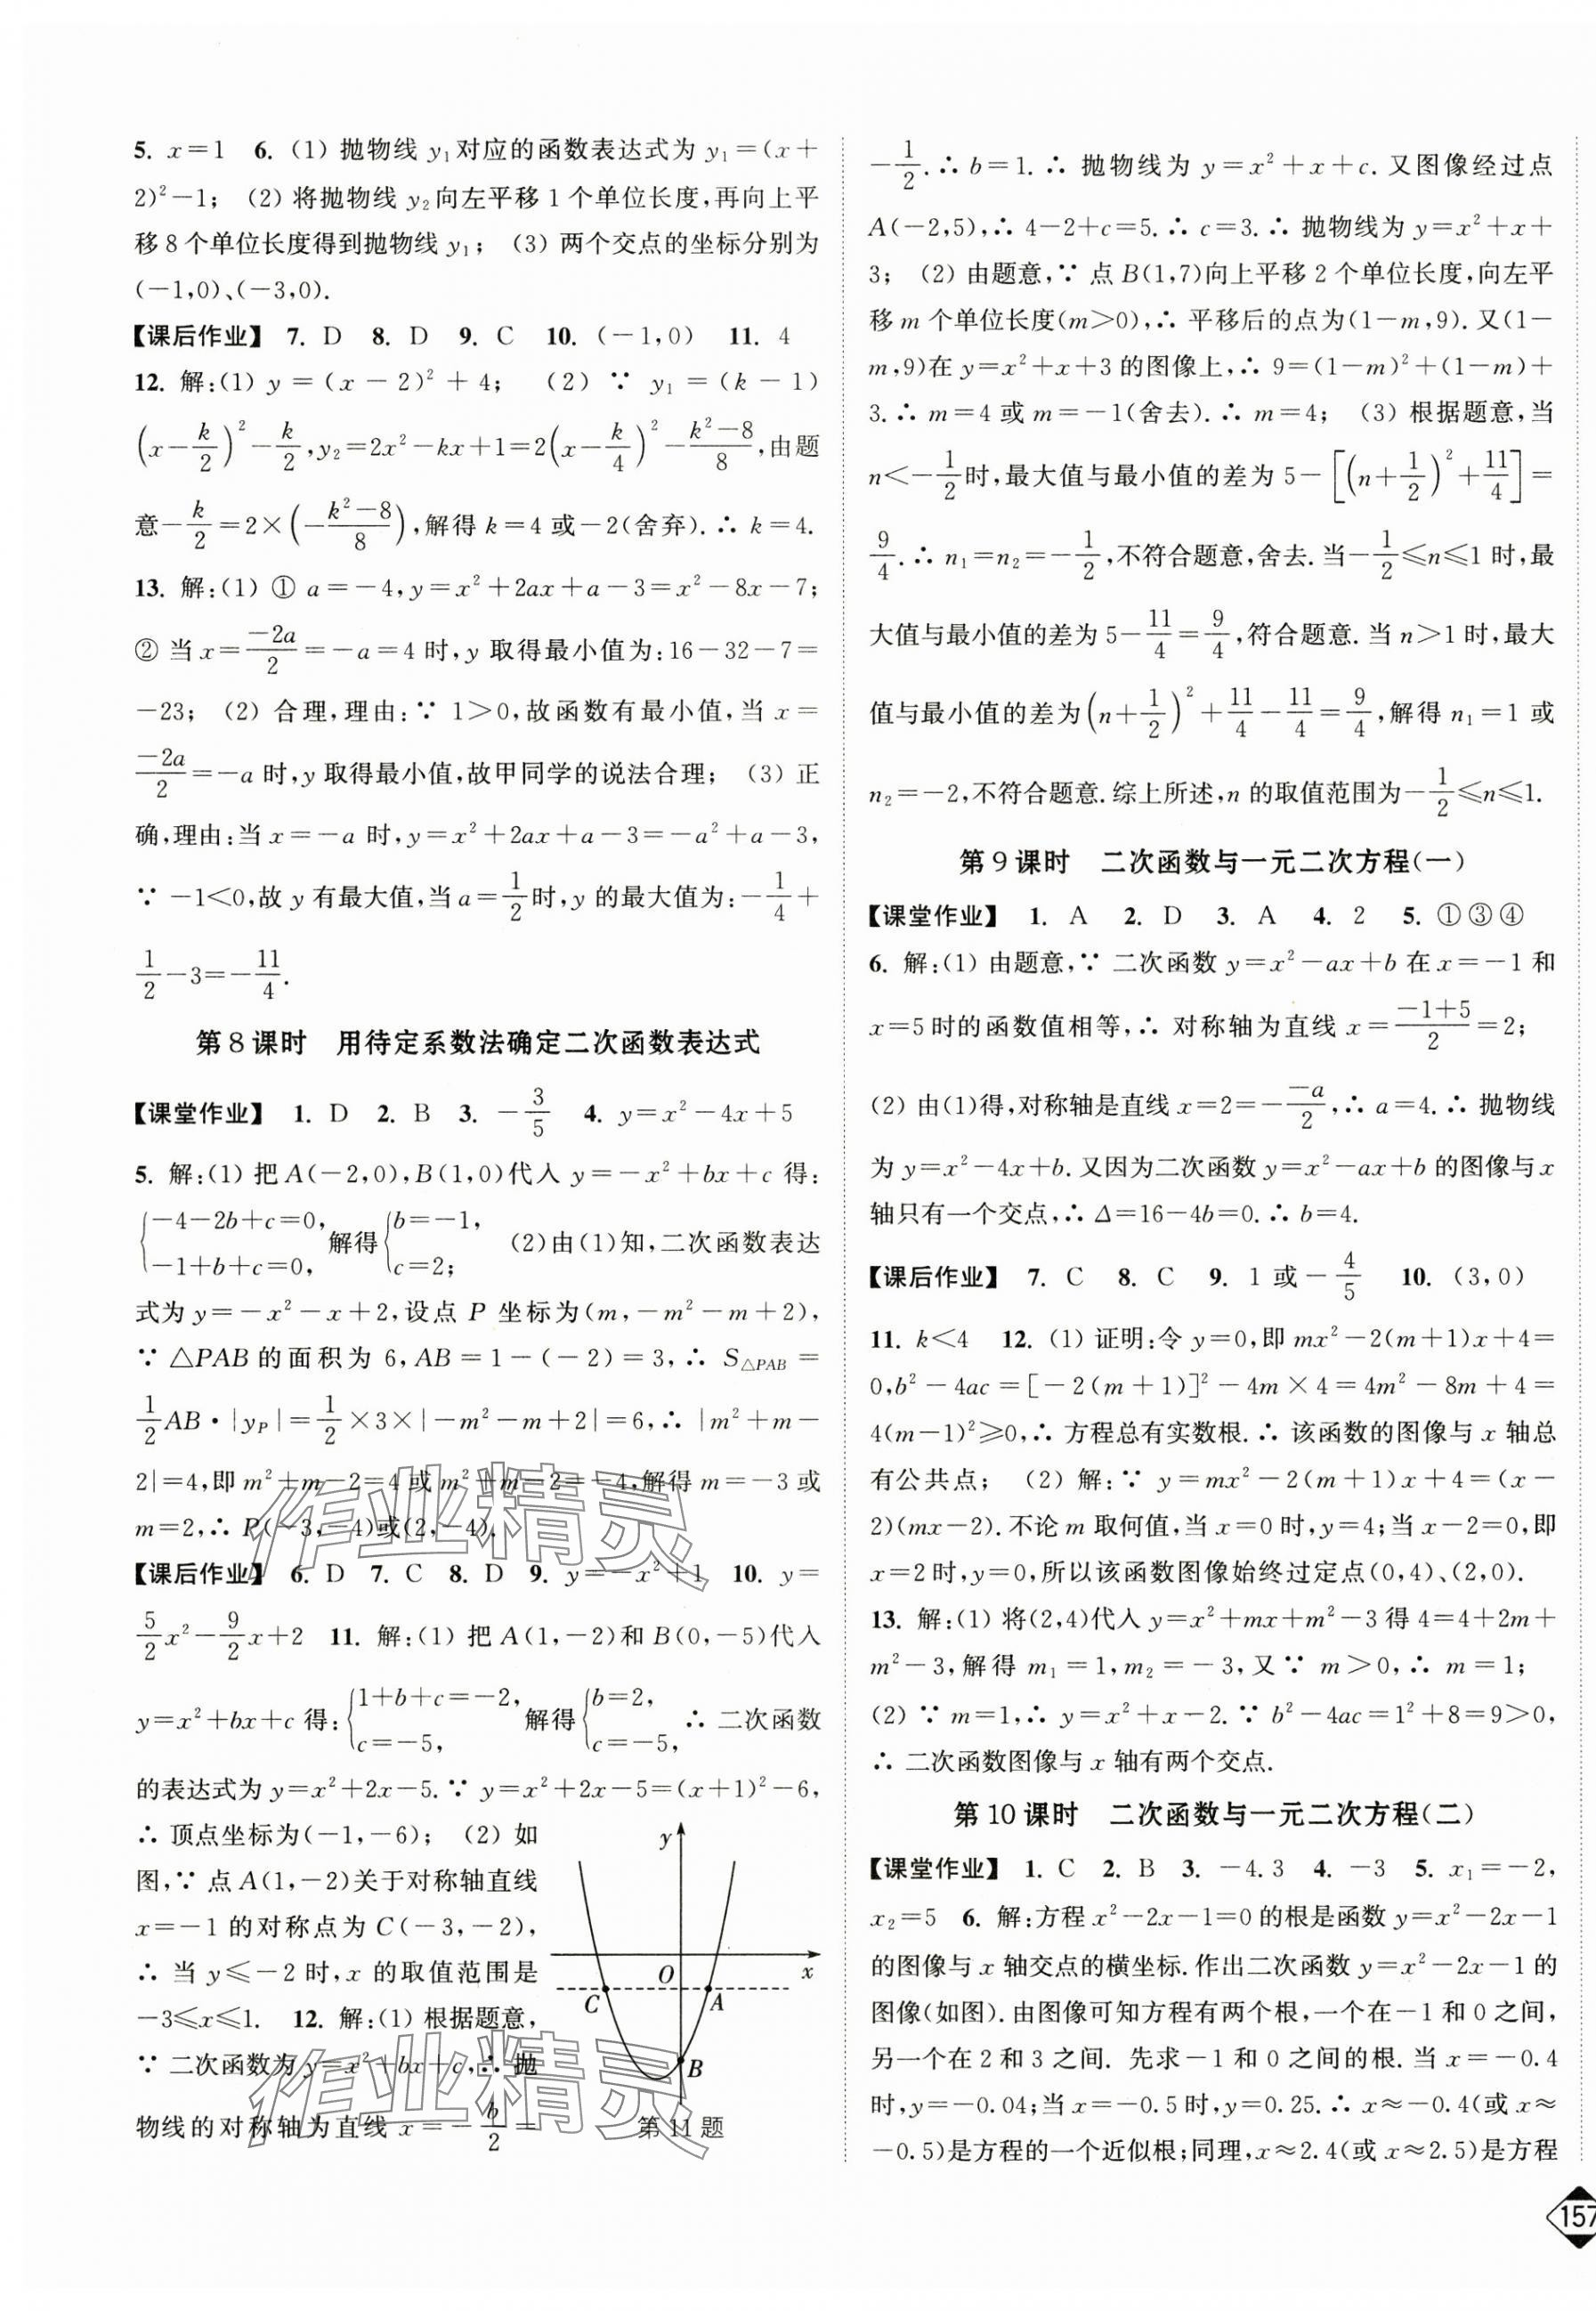 5. x=1　6. (1) 抛物线 y₁对应的函数表达式为 y₁=(x+
2)²-1; (2) 将抛物线 y₂向左平移 1 个单位长度,再向上平
移 8 个单位长度得到抛物线 y₁; (3) 两个交点的坐标分别为
(-1,0)、(-3,0).
【课后作业】 7. D　8. D　9. C　10. (-1,0)　11. 4
12. 解:(1) y=(x-2)²+4; (2) ∵ y₁=(k-1)
(x-k/2)²-k/2,y₂=2x²-kx+1=2(x-k/4)²-(k²-8)/8,由题
意-k/2=2×(-(k²-8)/8),解得 k=4 或-2(舍弃).∴ k=4.
13. 解:(1) ① a=-4,y=x²+2ax+a-3=x²-8x-7;
② 当 x=(-2a)/2=-a=4 时,y 取得最小值为:16-32-7=
-23; (2) 合理,理由:∵ 1>0,故函数有最小值,当 x=
(-2a)/2=-a 时,y 取得最小值,故甲同学的说法合理; (3) 正
确,理由:当 x=-a 时,y=x²+2ax+a-3=-a²+a-3,
∵ -1<0,故 y 有最大值,当 a=1/2时,y 的最大值为:-1/4+
1/2-3=-11/4.
第 8 课时　用待定系数法确定二次函数表达式
【课堂作业】 1. D　2. B　3. -3/5　4. y=x²-4x+5
5. 解:(1) 把 A(-2,0),B(1,0)代入 y=-x²+bx+c 得:
{-4-2b+c=0, -1+b+c=0, 解得{b=-1, c=2; (2)由(1)知,二次函数表达
式为 y=-x²-x+2,设点 P 坐标为(m,-m²-m+2),
∵ △PAB 的面积为 6,AB=1-(-2)=3,∴ S△PAB=
1/2AB·|y_P|=1/2×3×|-m²-m+2|=6,∴ |m²+m-
2|=4,即 m²+m-2=4 或 m²+m-2=-4,解得 m=-3 或
m=2,∴ P(-3,-4)或(2,-4).
【课后作业】 6. D　7. C　8. D　9. y=-x²+1　10. y=
5/2x²-9/2x+2　11. 解:(1) 把 A(1,-2)和 B(0,-5)代入
y=x²+bx+c 得:{1+b+c=-2, c=-5, 解得{b=2, c=-5, ∴ 二次函数
的表达式为 y=x²+2x-5.∵ y=x²+2x-5=(x+1)²-6,
∴ 顶点坐标为(-1,-6); (2) 如
图,∵ 点 A(1,-2)关于对称轴直线
x=-1 的对称点为 C(-3,-2),
∴ 当 y≤-2 时,x 的取值范围是
-3≤x≤1.　12. 解:(1) 根据题意,
∵ 二次函数为 y=x²+bx+c,∴ 抛
物线的对称轴为直线 x=-b/2=
y
O
x
C
A
B
第 11 题
作业精灵
作业精灵
-1/2.∴ b=1.∴ 抛物线为 y=x²+x+c. 又图像经过点
A(-2,5),∴ 4-2+c=5.∴ c=3.∴ 抛物线为 y=x²+x+
3; (2) 由题意,∵ 点 B(1,7)向上平移 2 个单位长度,向左平
移 m 个单位长度(m>0),∴ 平移后的点为(1-m,9). 又(1-
m,9)在 y=x²+x+3 的图像上,∴ 9=(1-m)²+(1-m)+
3.∴ m=4 或 m=-1(舍去).∴ m=4; (3) 根据题意,当
n<-1/2时,最大值与最小值的差为 5-[(n+1/2)²+11/4]=
9/4.∴ n₁=n₂=-1/2,不符合题意,舍去.当-1/2≤n≤1 时,最
大值与最小值的差为 5-11/4=9/4,符合题意. 当 n>1 时,最大
值与最小值的差为(n+1/2)²+11/4-11/4=9/4,解得 n₁=1 或
n₂=-2,不符合题意.综上所述,n 的取值范围为-1/2≤n≤1.
第 9 课时　二次函数与一元二次方程(一)
【课堂作业】 1. A　2. D　3. A　4. 2　5. ①③④
6. 解:(1) 由题意,∵ 二次函数 y=x²-ax+b 在 x=-1 和
x=5 时的函数值相等,∴ 对称轴为直线 x=(-1+5)/2=2;
(2) 由(1)得,对称轴是直线 x=2=-(-a)/2,∴ a=4.∴ 抛物线
为 y=x²-4x+b.又因为二次函数 y=x²-ax+b 的图像与 x
轴只有一个交点,∴ Δ=16-4b=0.∴ b=4.
【课后作业】 7. C　8. C　9. 1 或-4/5　10. (3,0)
11. k<4　12. (1) 证明:令 y=0,即 mx²-2(m+1)x+4=
0,b²-4ac=[-2(m+1)]²-4m×4=4m²-8m+4=
4(m-1)²≥0,∴ 方程总有实数根.∴ 该函数的图像与 x 轴总
有公共点; (2) 解:∵ y=mx²-2(m+1)x+4=(x-
2)(mx-2).不论 m 取何值,当 x=0 时,y=4;当 x-2=0,即
x=2 时,y=0,所以该函数图像始终过定点(0,4)、(2,0).
13. 解:(1) 将(2,4)代入 y=x²+mx+m²-3 得 4=4+2m+
m²-3,解得 m₁=1,m₂=-3,又∵ m>0,∴ m=1;
(2) ∵ m=1,∴ y=x²+x-2.∵ b²-4ac=1²+8=9>0,
∴ 二次函数图像与 x 轴有两个交点.
第 10 课时　二次函数与一元二次方程(二)
【课堂作业】 1. C　2. B　3. -4.3　4. -3　5. x₁=-2,
x₂=5　6. 解:方程 x²-2x-1=0 的根是函数 y=x²-2x-1
的图像与 x 轴交点的横坐标.作出二次函数 y=x²-2x-1 的
图像(如图).由图像可知方程有两个根,一个在-1 和 0 之间,
另一个在 2 和 3 之间. 先求-1 和 0 之间的根. 当 x=-0.4
时,y=-0.04;当 x=-0.5 时,y=0.25.∴ x≈-0.4(或 x≈
-0.5)是方程的一个近似根;同理,x≈2.4(或 x≈2.5)是方程
157